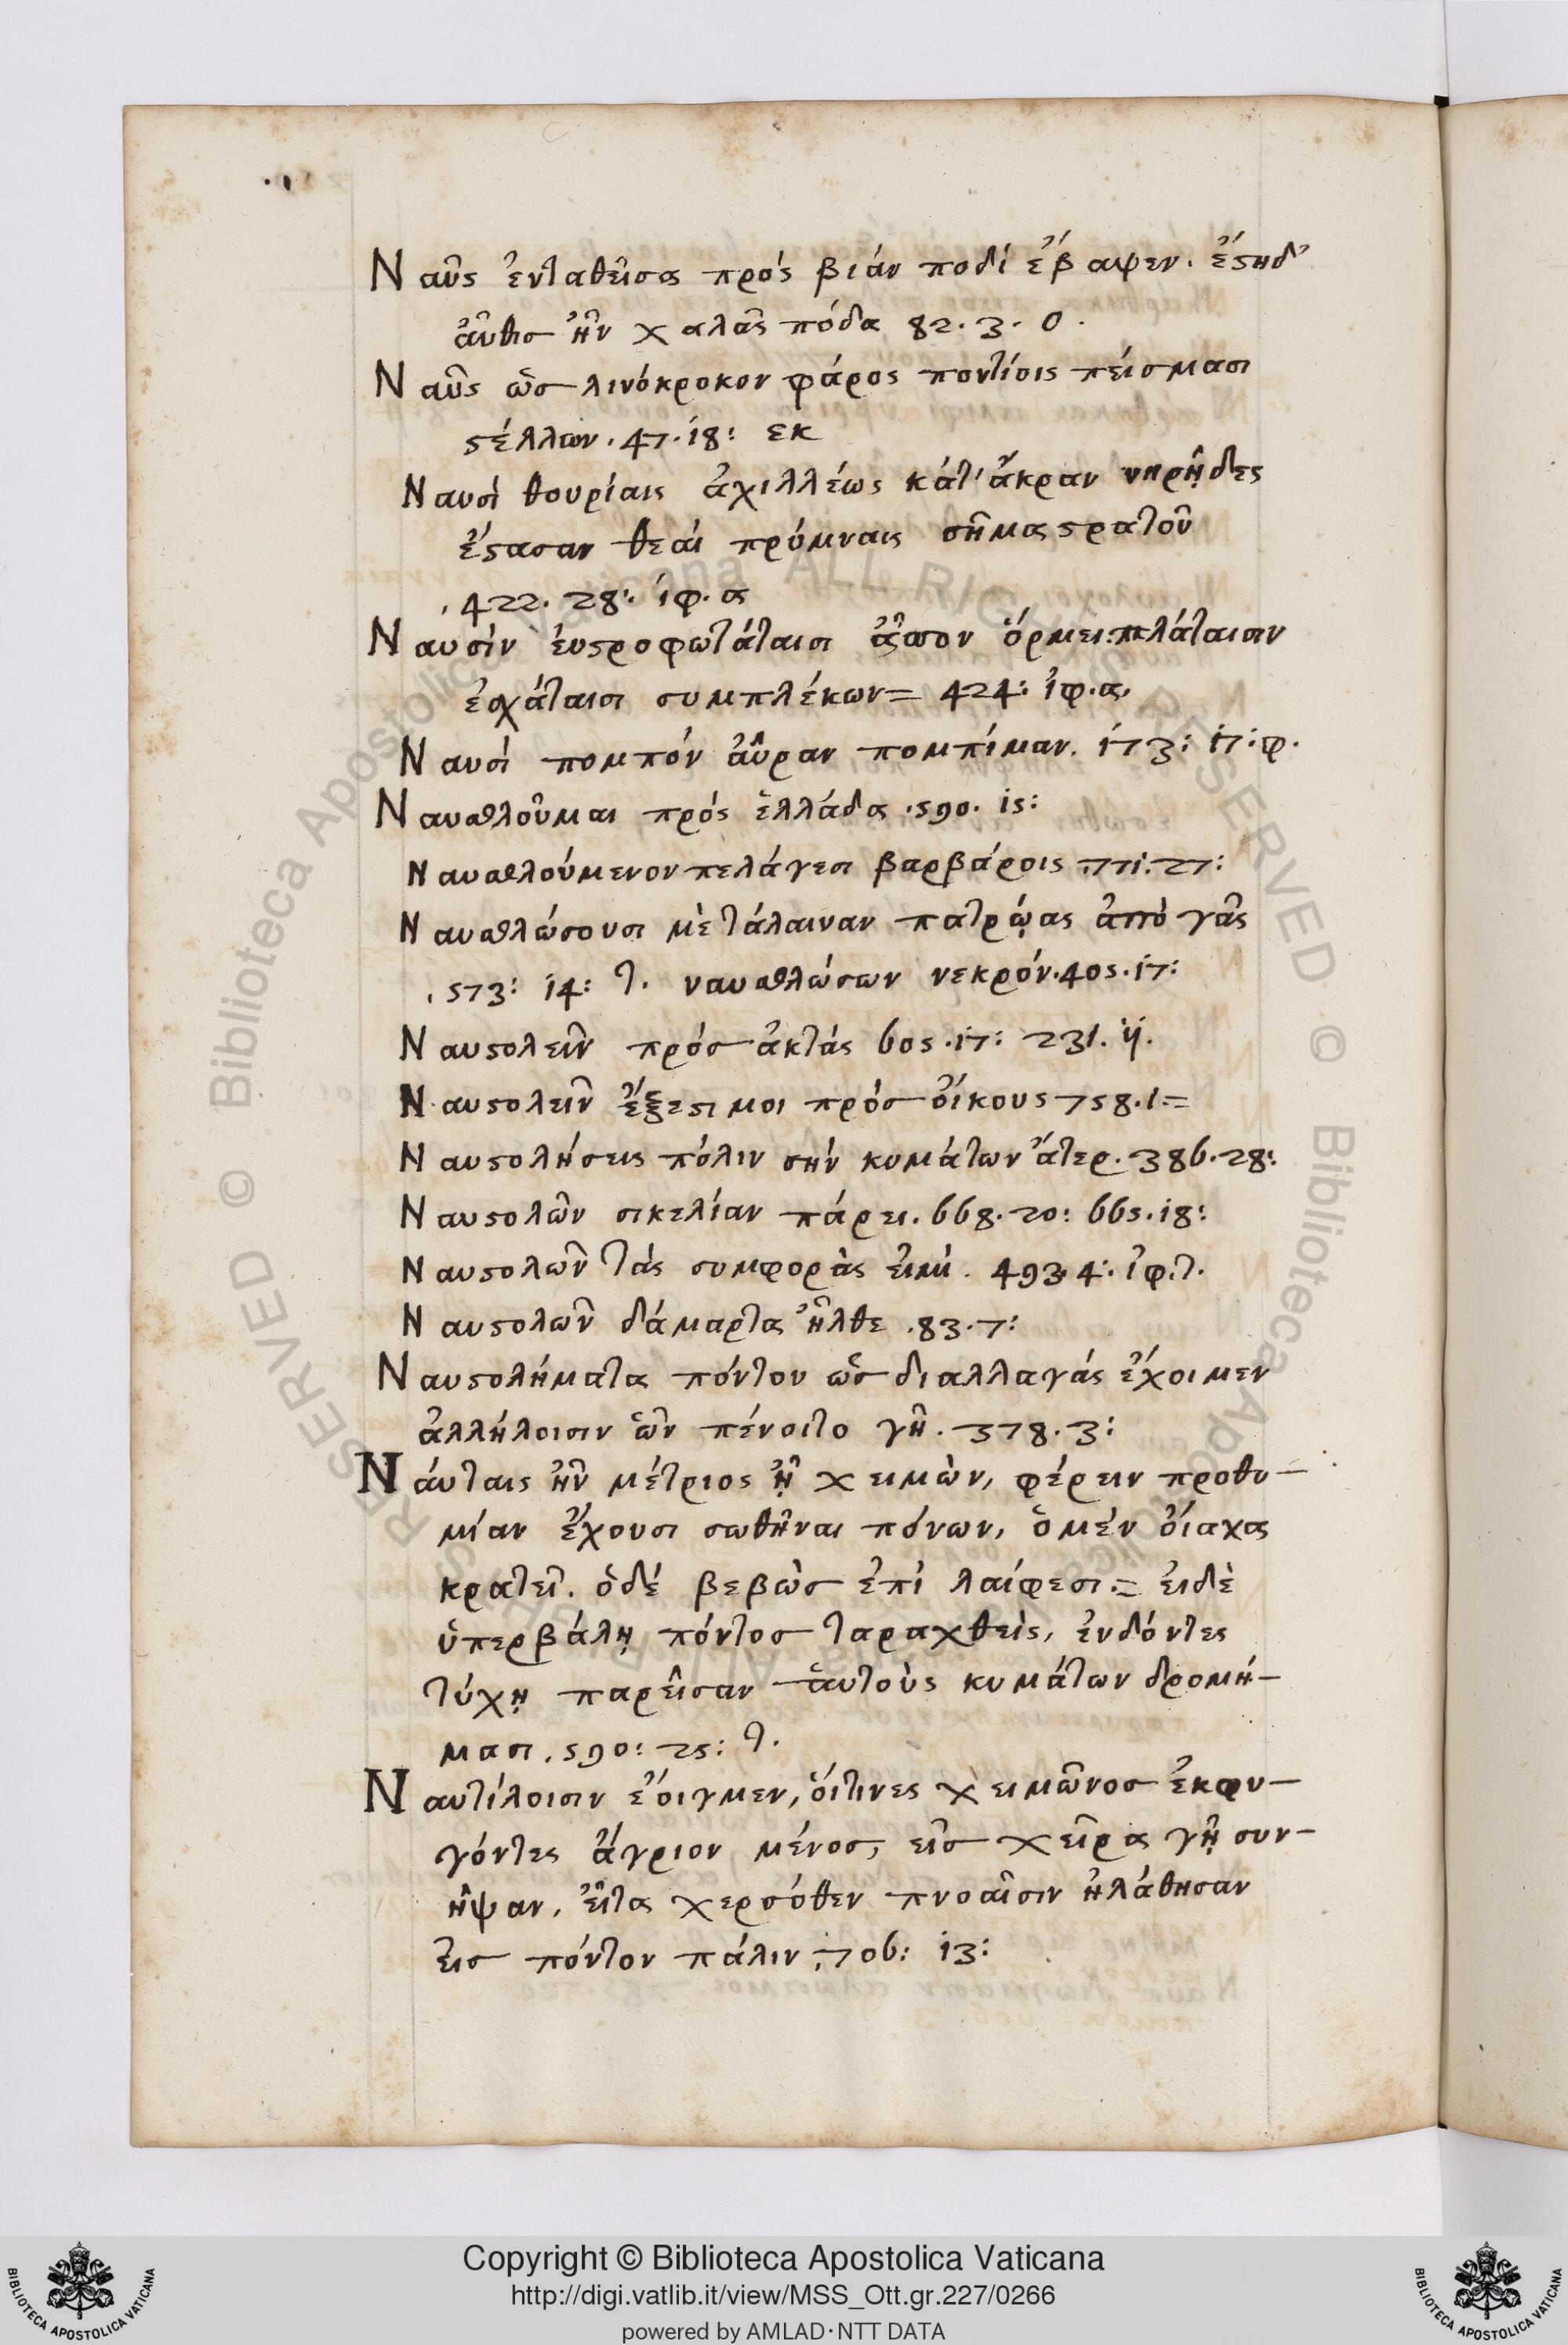 Ναῦς ἐνταθεῖσα πρός βιάν ποδί ἔβαψεν. ἔςηδ'
ἆυθισ ἢν χαλᾶς πόδα 82. 3. 0.
Ναῦς ὥσ λινόκροκον φάρος ποντίοις πείσμασι
ςέλλων. 47. i8: εκ
Ναυσὶ θουρίαις ἀχιλλέως κάτ' ἄκραν νηρῇδες
ἔςασαν θεάι πρύμναις σῆμα ςρατοῦ
. 422. 28: ἰφ. α
Ναυσίν ἐυςροφωτάταισι ὅρμει: πλάταισιν
ἐσχάταισι συμπλέκων = 424: ἰφ. α.
Ναυσί πομπόν ἄυραν πομπίμαν. i73: i7: φ.
Ναυσθλοῦμαι πρός ἑλλάδα . 590. i5:
Ναυσθλούμενον πελάγεσι βαρβάροις 77i. 27:
Ναυσθλώσουσι μὲ τάλαιναν πατρῴας ἀπὸ γᾶς
. 573: i4: τ. ναυσθλώσων νεκρόν. 405. i7:
Ναυςολεῖν πρόσ ἀκτάς 605. i7: 231. ij.
Ναυςολεῖν ἔξεςι μοι πρόσ ὄίκους 758. 1. =
Ναυςολήσεις πόλιν σὴν κυμάτων ἄτερ. 386. 28:
Ναυςολῶν σικελίαν πάρει. 668. 20: 665. i8:
Ναυςολῶν τάς συμφορὰς ἐιμί. 493. 4: ἰφ. τ.
Ναυςολῶν δάμαρτα ἦλθε . 83. 7:
Ναυςολήματα πόντου ὥσ διαλλαγάς ἔχοιμεν
ἀλλήλοισιν ὧν πένοιτο γῆ. 378. 3:
Νάυταις ἢν μέτριος ᾖ χειμὼν, φέρειν προθυ-
μίαν ἔχουσι σωθῆναι πόνων, ὁ μέν ὄίακα
κρατεῖ. ὁδέ βεβὼσ ἐπί λαίφεσι. = ἐιδὲ
ὑπερβάλῃ πόντοσ ταραχθεὶς, ἐνδόντες
τύχῃ παρεῖσαν ἁυτοὺς κυμάτων δρομή-
μασι. 590: 25: τ.
Ναυτίλοισιν ἔοιγμεν, ὅιτινες χειμῶνοσ ἐκφυ-
γόντες ἄγριον μένοσ, εἰσ χεῖρα γῇ συν-
ῆψαν, ἔιτα χερσόθεν πνοαῖσιν ἠλάθησαν
ἐισ πόντον πάλιν. 706: i3:
Copyright © Biblioteca Apostolica Vaticana
http://digi.vatlib.it/view/MSS_Ott.gr.227/0266
powered by AMLAD·NTT DATA